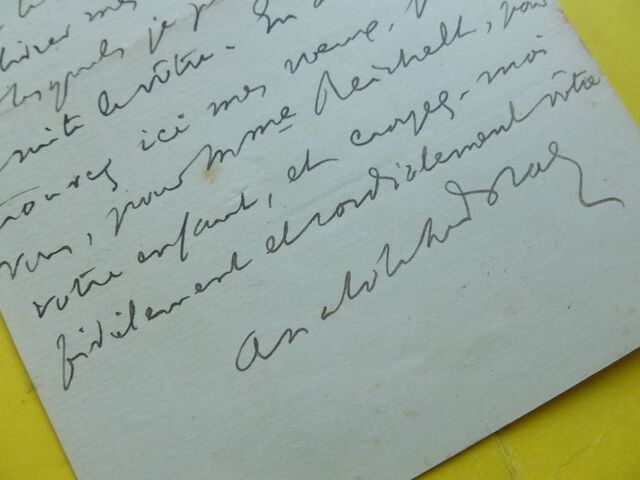 mes
lesquels je
la vôtre. En
trouvez ici mes vœux, pour
vous, pour Mme Reichelt, pour
votre enfant, et croyez-moi
fidèlement et cordialement vôtre